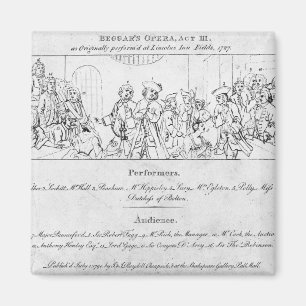 BEGGAR'S OPERA, ACT III.
as Originally perform'd at Lincolns Inn Fields, 1727.
Performers.
Lockitt, Mr. Hall 3 Peachum, Mr. Hippisley 4 Lucy, Mrs. Egleton 5 Polly, Miss
Dutchess of Bolton.
Audience.
7 Major Paunceford, 8 Sir Robert Fagg, 9 Mr. Rich, the Manager, 10 Mr. Cock, the Auctio
Anthony Henley Esqr. 13 Lord Gage, 14 Sir Conyers D'Arcy, 15 Sir Thos. Robinson.
Publish'd July 1, 1790, by at the Shakspeare Gallery, Pall Mall.